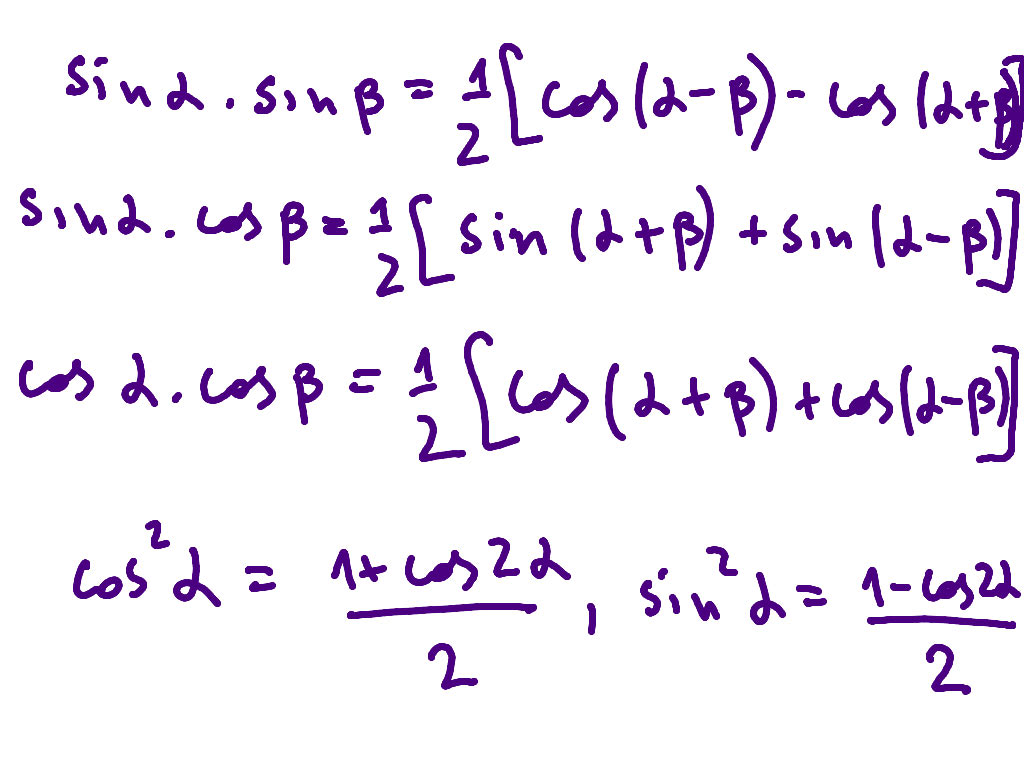 sin α · sin β = 1/2 [cos(α - β) - cos(α + β)]
sin α · cos β = 1/2 [sin(α + β) + sin(α - β)]
cos α · cos β = 1/2 [cos(α + β) + cos(α - β)]
cos² α = (1 + cos 2α)/2 , sin² α = (1 - cos 2α)/2